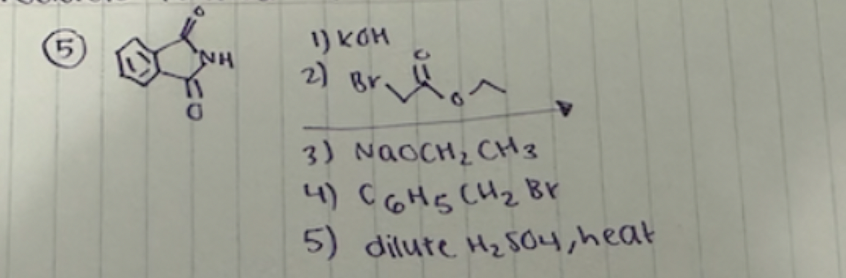 5
O
NH
O
1) KOH
2) Br O O
3) NaOCH2CH3
4) C6H5CH2Br
5) dilute H2SO4, heat